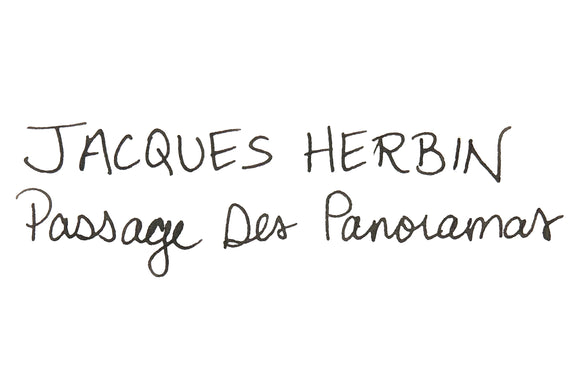 JACQUES HERBIN
Passage Des Panoramas